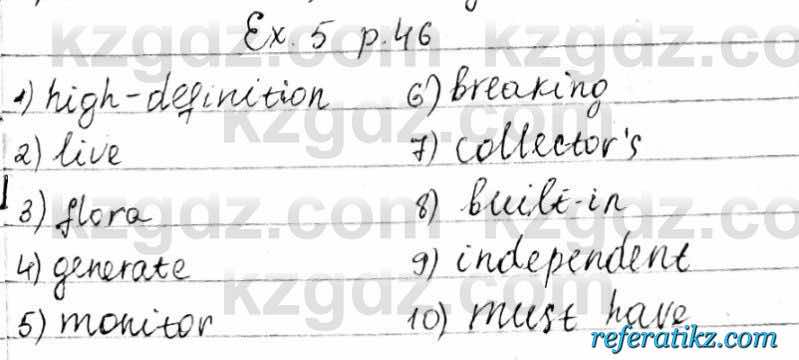 Ex. 5 p.46
1) high-definition
2) live
3) flora
4) generate
5) monitor
6) breaking
7) collector's
8) built-in
9) independent
10) must have
kzgdz.com
referatikz.com